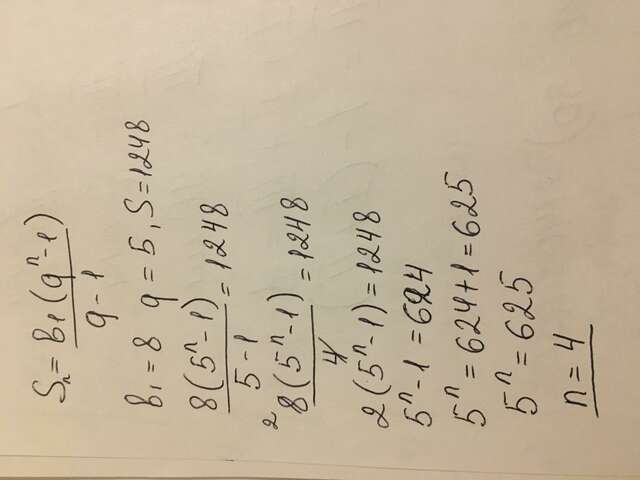 Sₙ = b₁(qⁿ-1)
q-1
b₁ = 8 q = 5, S = 1248
8(5ⁿ-1) = 1248
5-1
2
8(5ⁿ-1) = 1248
4
2(5ⁿ-1) = 1248
5ⁿ-1 = 624
5ⁿ = 624+1 = 625
5ⁿ = 625
n = 4